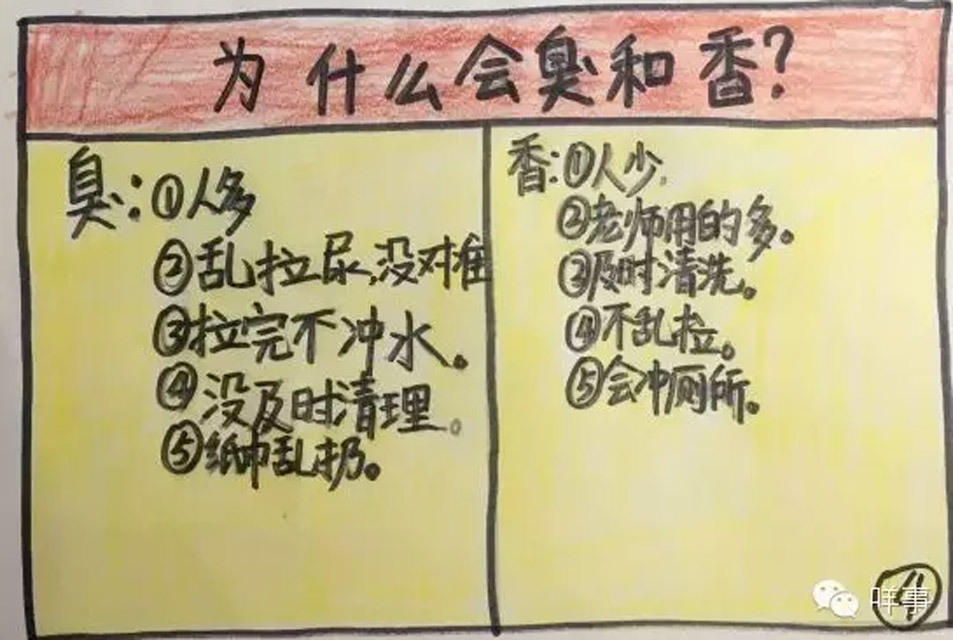 为什么会臭和香?
臭:①人多
②乱拉尿,没对准
③拉完不冲水。
④没及时清理。
⑤纸巾乱扔。
香:①人少,
②老师用的多。
③及时清洗。
④不乱拉。
⑤会冲厕所。
④
咩事